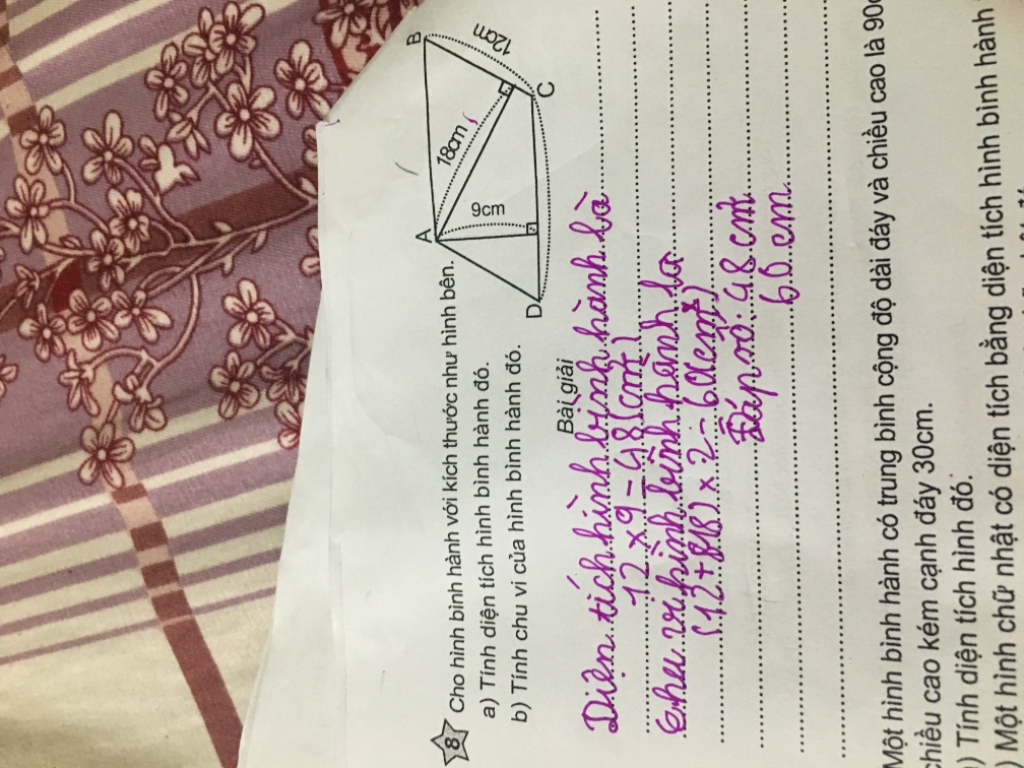 8 Cho hình bình hành với kích thước như hình bên.
a) Tính diện tích hình bình hành đó.
b) Tính chu vi của hình bình hành đó.
A
B
12cm
18cm
9cm
D
C
Bài giải
Diện tích hình bình hành là
12 x 9 = 48 (cm²)
Chu vi hình bình hành là
(12 + 18) x 2 = 60 (cm²)
Đáp số: 48 cm²
60 cm
Một hình bình hành có trung bình cộng độ dài đáy và chiều cao là 90c
chiều cao kém cạnh đáy 30cm.
) Tính diện tích hình đó.
) Một hình chữ nhật có diện tích bằng diện tích hình bình hành